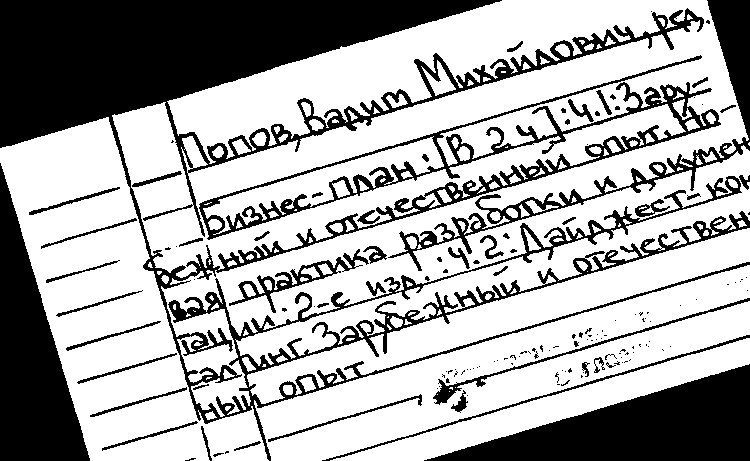 Попов, Вадим Михайлович, ред.
Бизнес-план: [В 2 ч.]: ч.1: Зару=
бежный и отечественный опыт. Но-
вая практика разработки и докумен
тации: 2-е изд.: ч.2: Дайджест-кон
салтинг. Зарубежный и отечествен
ный опыт.